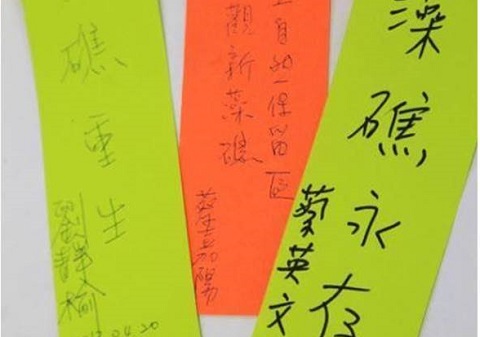 礁重生
劉靜榆
立自然保留區
觀新藻礁
蔡嘉陽
藻礁永存
蔡英文